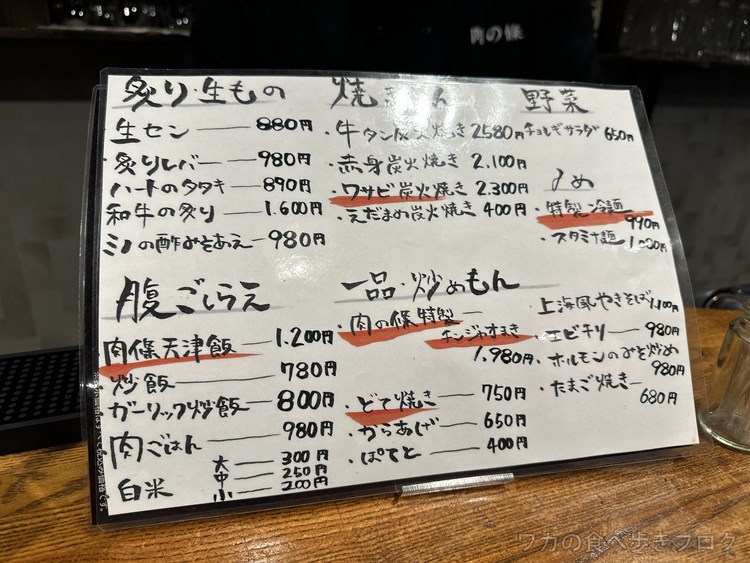 肉の條
炙り・生もの
生セン 880円
炙りレバー 980円
ハートのタタキ 890円
和牛の炙り 1.600円
ミノの酢みそあえ 980円
腹ごしらえ
肉條天津飯 1.200円
炒飯 780円
ガーリック炒飯 800円
肉ごはん 980円
白米 大 300円
中 250円
小 200円
焼き
・牛タン炭火焼き 2580円
・赤身炭火焼き 2.100円
・ワサビ炭火焼き 2.300円
・えだまめ炭火焼き 400円
野菜
チョレギサラダ 650円
・特製冷麺 990円
・スタミナ麺
一品・炒めもん
・肉の條特製
チンジャオまき 1.980円
・どて焼き 750円
・からあげ 650円
・ぽてと 400円
・上海風やきそば 1,100円
・エビチリ 980円
・ホルモンのみそ炒め 980円
・たまご焼き 680円
ワカの食べ歩きブログ